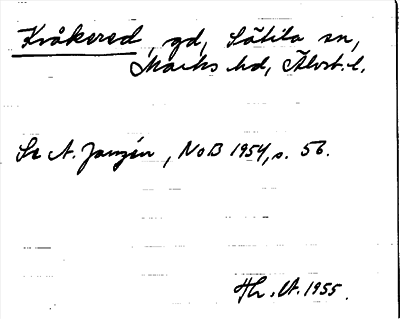 Kråkered, gd, Sätila sn,
Marks hd, Älvsb. l.
Se A. Janzén, NoB 1954, s. 56.
Hr. A. 1955.